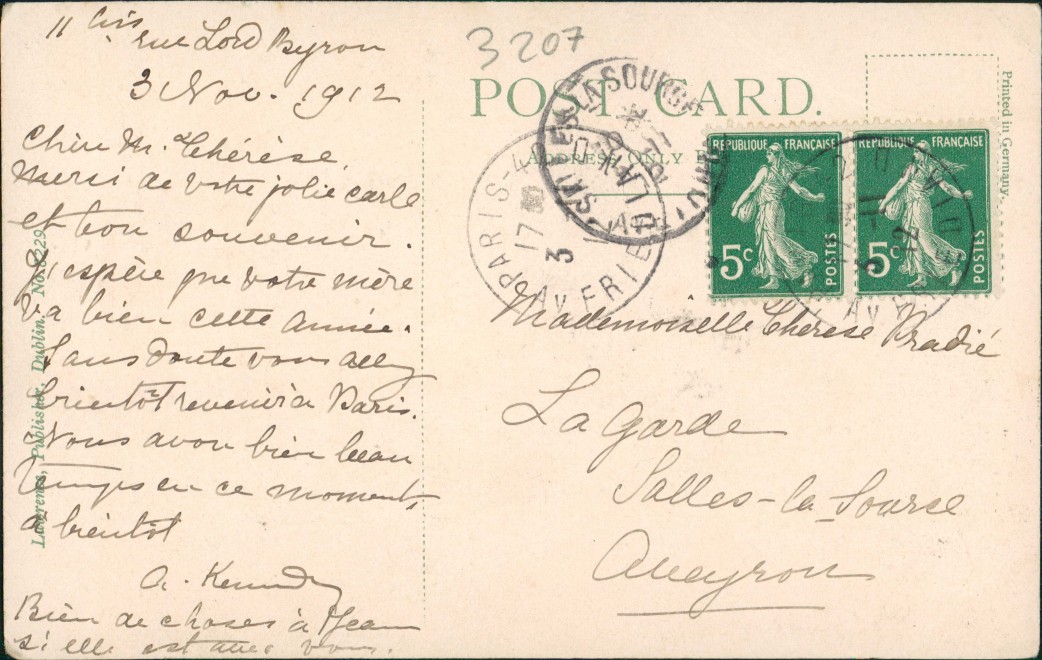 11 bis
rue Lord Byron
3 Nov. 1912
Chère M. Thérèse,
Merci de votre jolie carte
et bon souvenir.
J'espère que votre mère
va bien cette année.
Sans doute vous allez
bientôt revenir à Paris.
Nous avon bien beau
temps en ce moment,
à bientôt
A. Kennedy
Bien de choses à
si elle est avec vous.
Lawrence, Publisher, Dublin. No. 229
3207
POST CARD.
ADDRESS ONLY
Printed in Germany.
SALLES-LA-SOURCE
PARIS-4
17
3
AV
REPUBLIQUE FRANÇAISE
5c
POSTES
REPUBLIQUE FRANÇAISE
5c
POSTES
Mademoiselle Thérèse Pradié
La Garde
Salles-la-Source
Aveyron